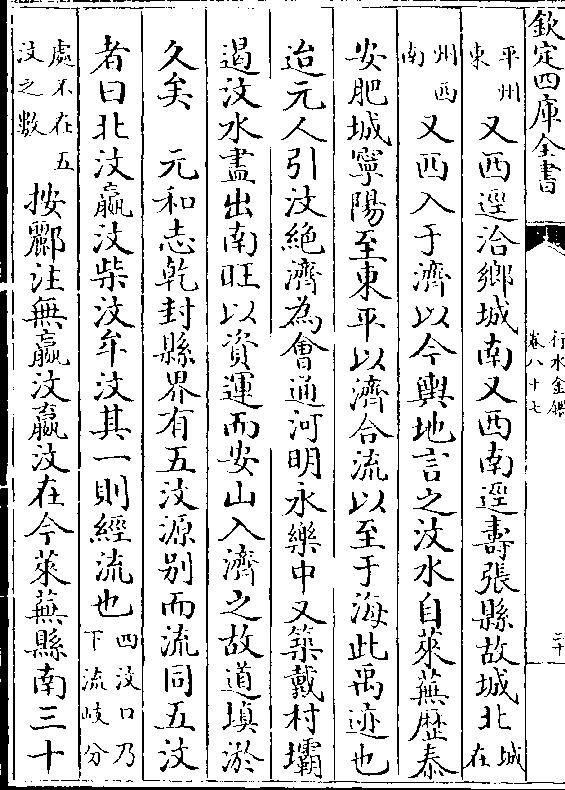 欽定四庫全書
行水金鑑
卷八十七
二十
平州東又西逕洽鄉城南又西南逕壽張縣故城北城在
州西南又西入于濟以今輿地言之汶水自萊蕪歴泰
安肥城寧陽至東平以濟合流以至于海此禹迹也
迨元人引汶絶濟為會通河明永樂中又築戴村壩
遏汶水盡出南旺以資運而安山入濟之故道填淤
久矣　元和志乾封縣界有五汶源别而流同五汶
者曰北汶嬴汶柴汶牟汶其一則經流也四汶口乃下流岐分
處不在五汶之數按酈注無嬴汶嬴汶在今萊蕪縣南三十